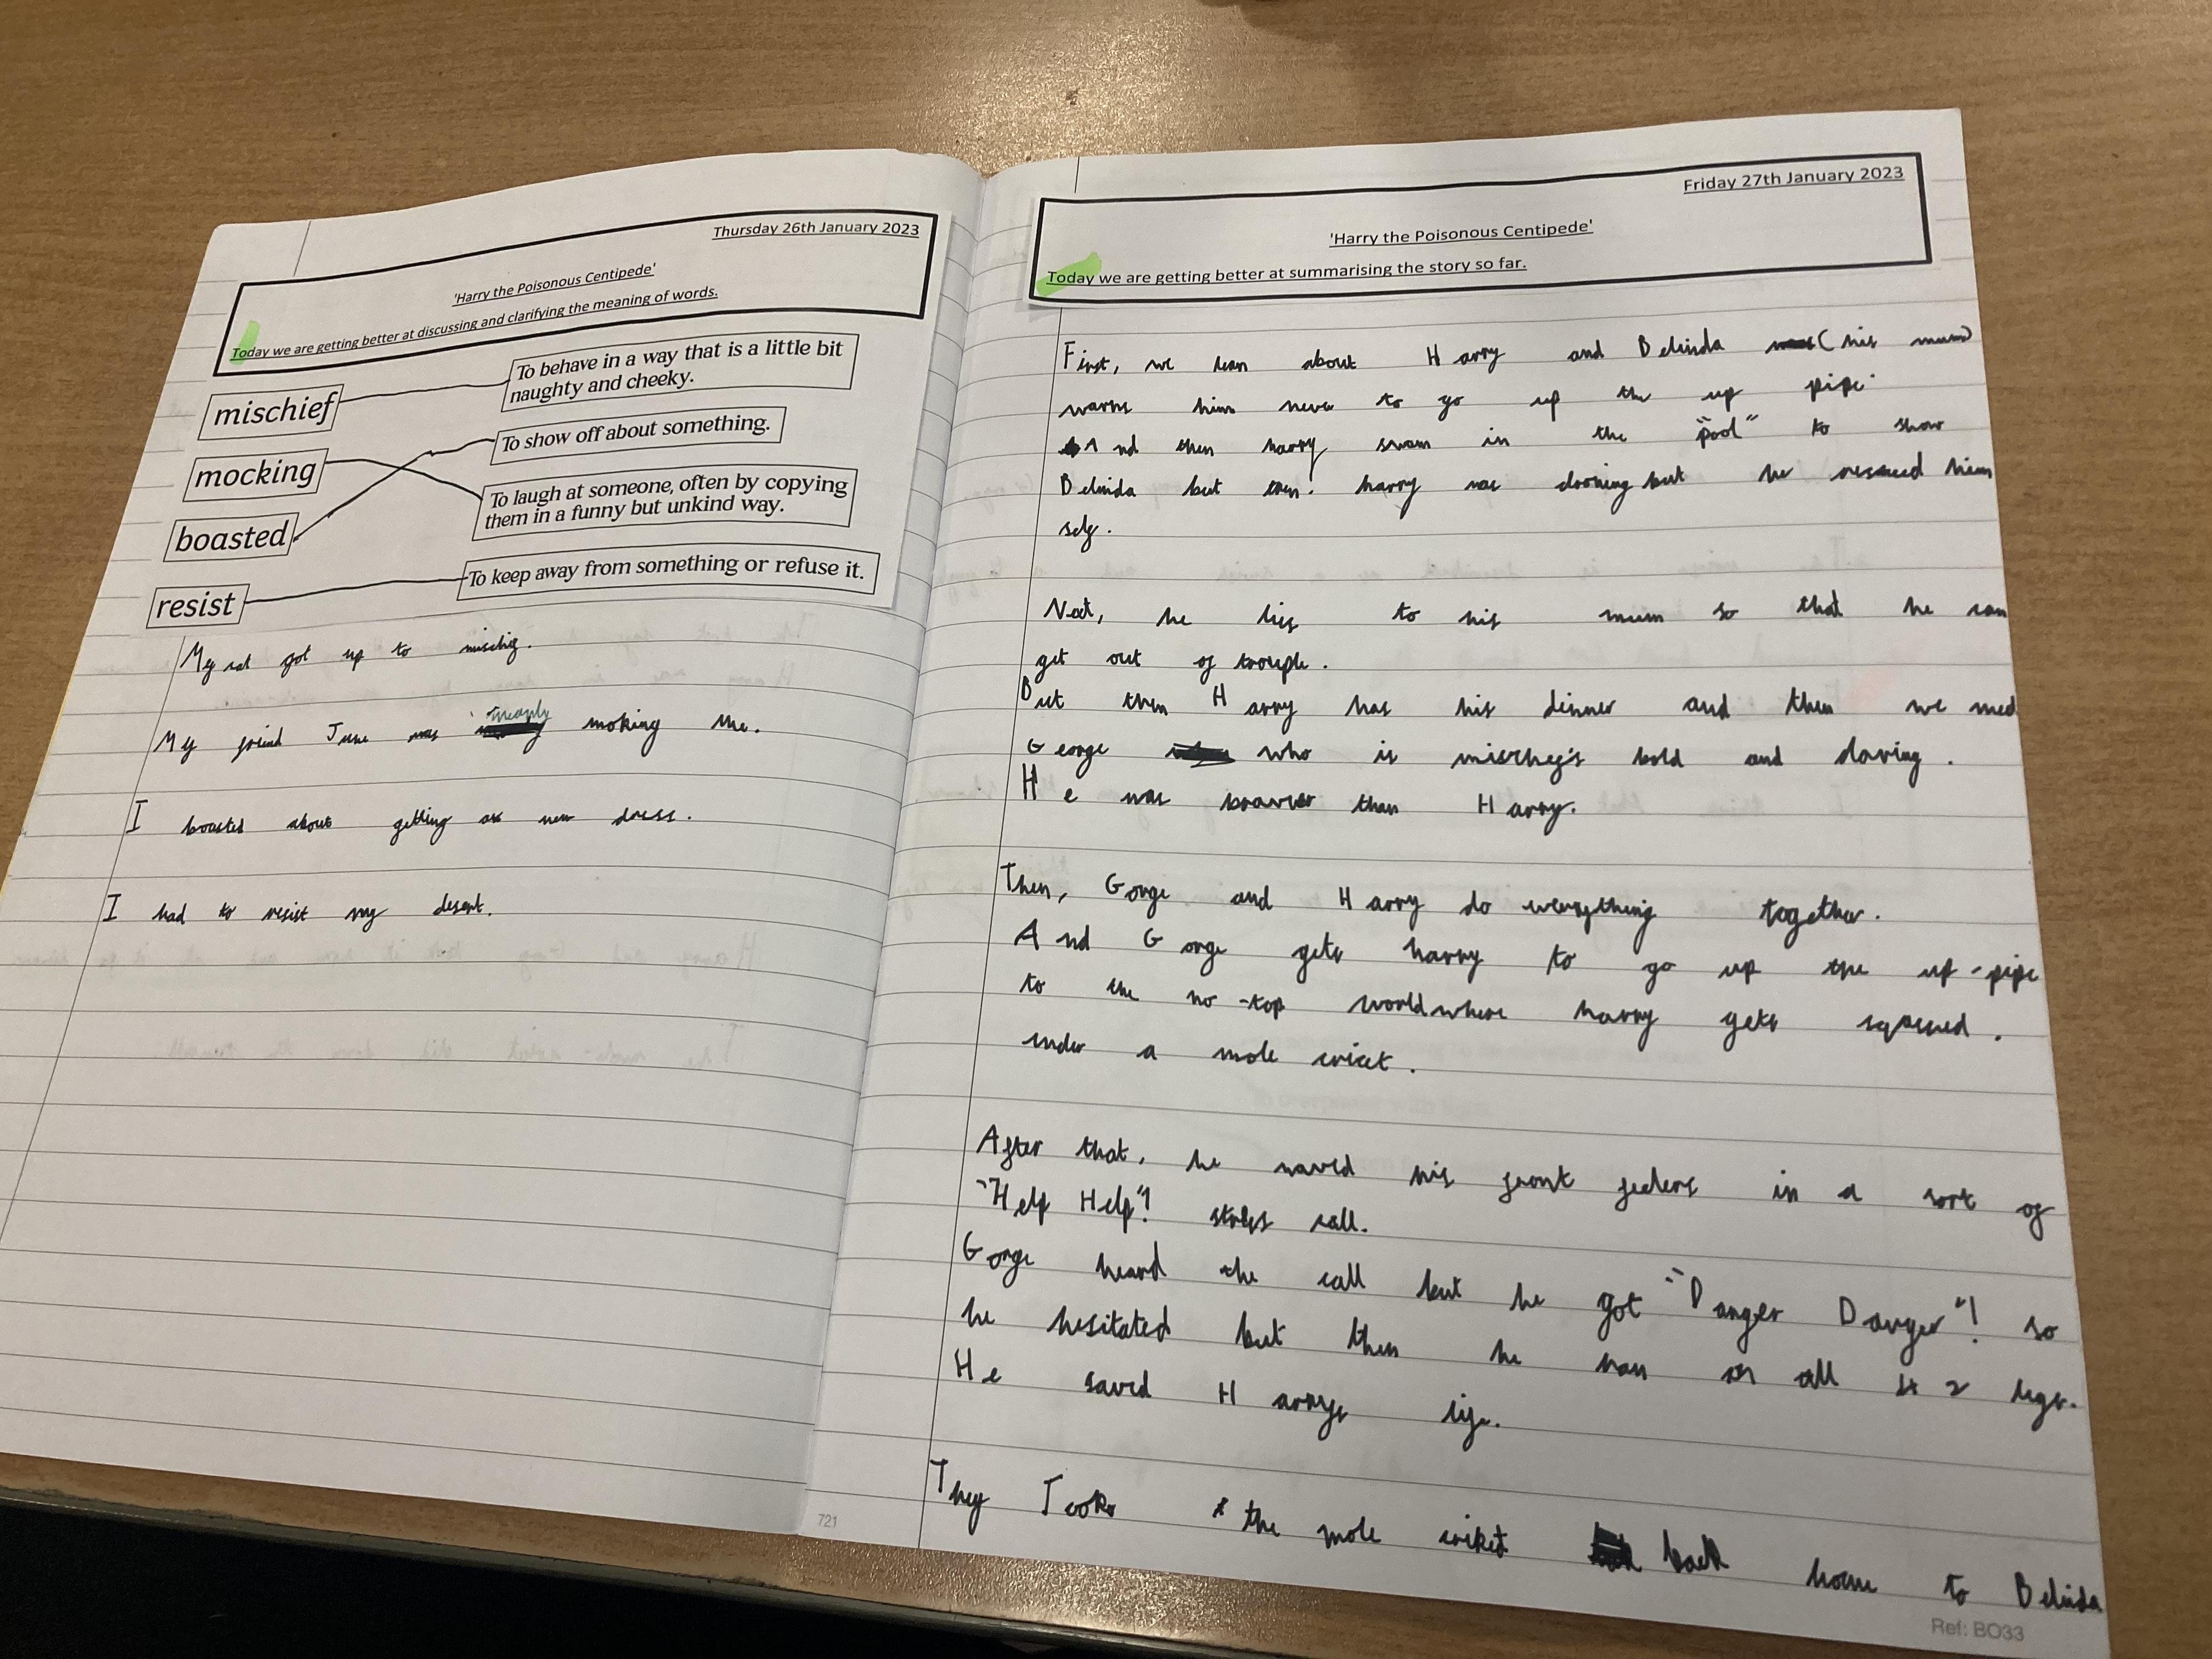 Thursday 26th January 2023
'Harry the Poisonous Centipede'
Today we are getting better at discussing and clarifying the meaning of words.
mischief
To behave in a way that is a little bit
naughty and cheeky.
mocking
To show off about something.
boasted
To laugh at someone, often by copying
them in a funny but unkind way.
resist
To keep away from something or refuse it.
My cat got up to mischif.
My friend June was meanly moking me.
I boasted about getting a new dress.
I had to resist my desert.
721
Friday 27th January 2023
'Harry the Poisonous Centipede'
Today we are getting better at summarising the story so far.
First, we lern about Harry and Belinda (his mum)
warns him never to go up the up pipe.
And then harry swam in the "pool" to show
Belinda but then! harry was drowing but he rescued him
self.
Next, he lies to his mum so that he can
get out of trouple.
But then Harry has his dinner and then we med
George who is mischefs bold and daring.
He was braver than Harry.
Then, Gorge and Harry do everything together.
And Gorge gets harry to go up the up-pipe
to the no-top world where harry gets sqpesed.
under a mole cricet.
After that, he waved his front feelers in a sort of
"Help Help"! call.
Gorge heard the call but he got "Danger Danger"! so
he hesitated but then he ran on all 42 legs.
He saved Harrys life.
They Took the mole criket back home to Belinda
Ref: BO33